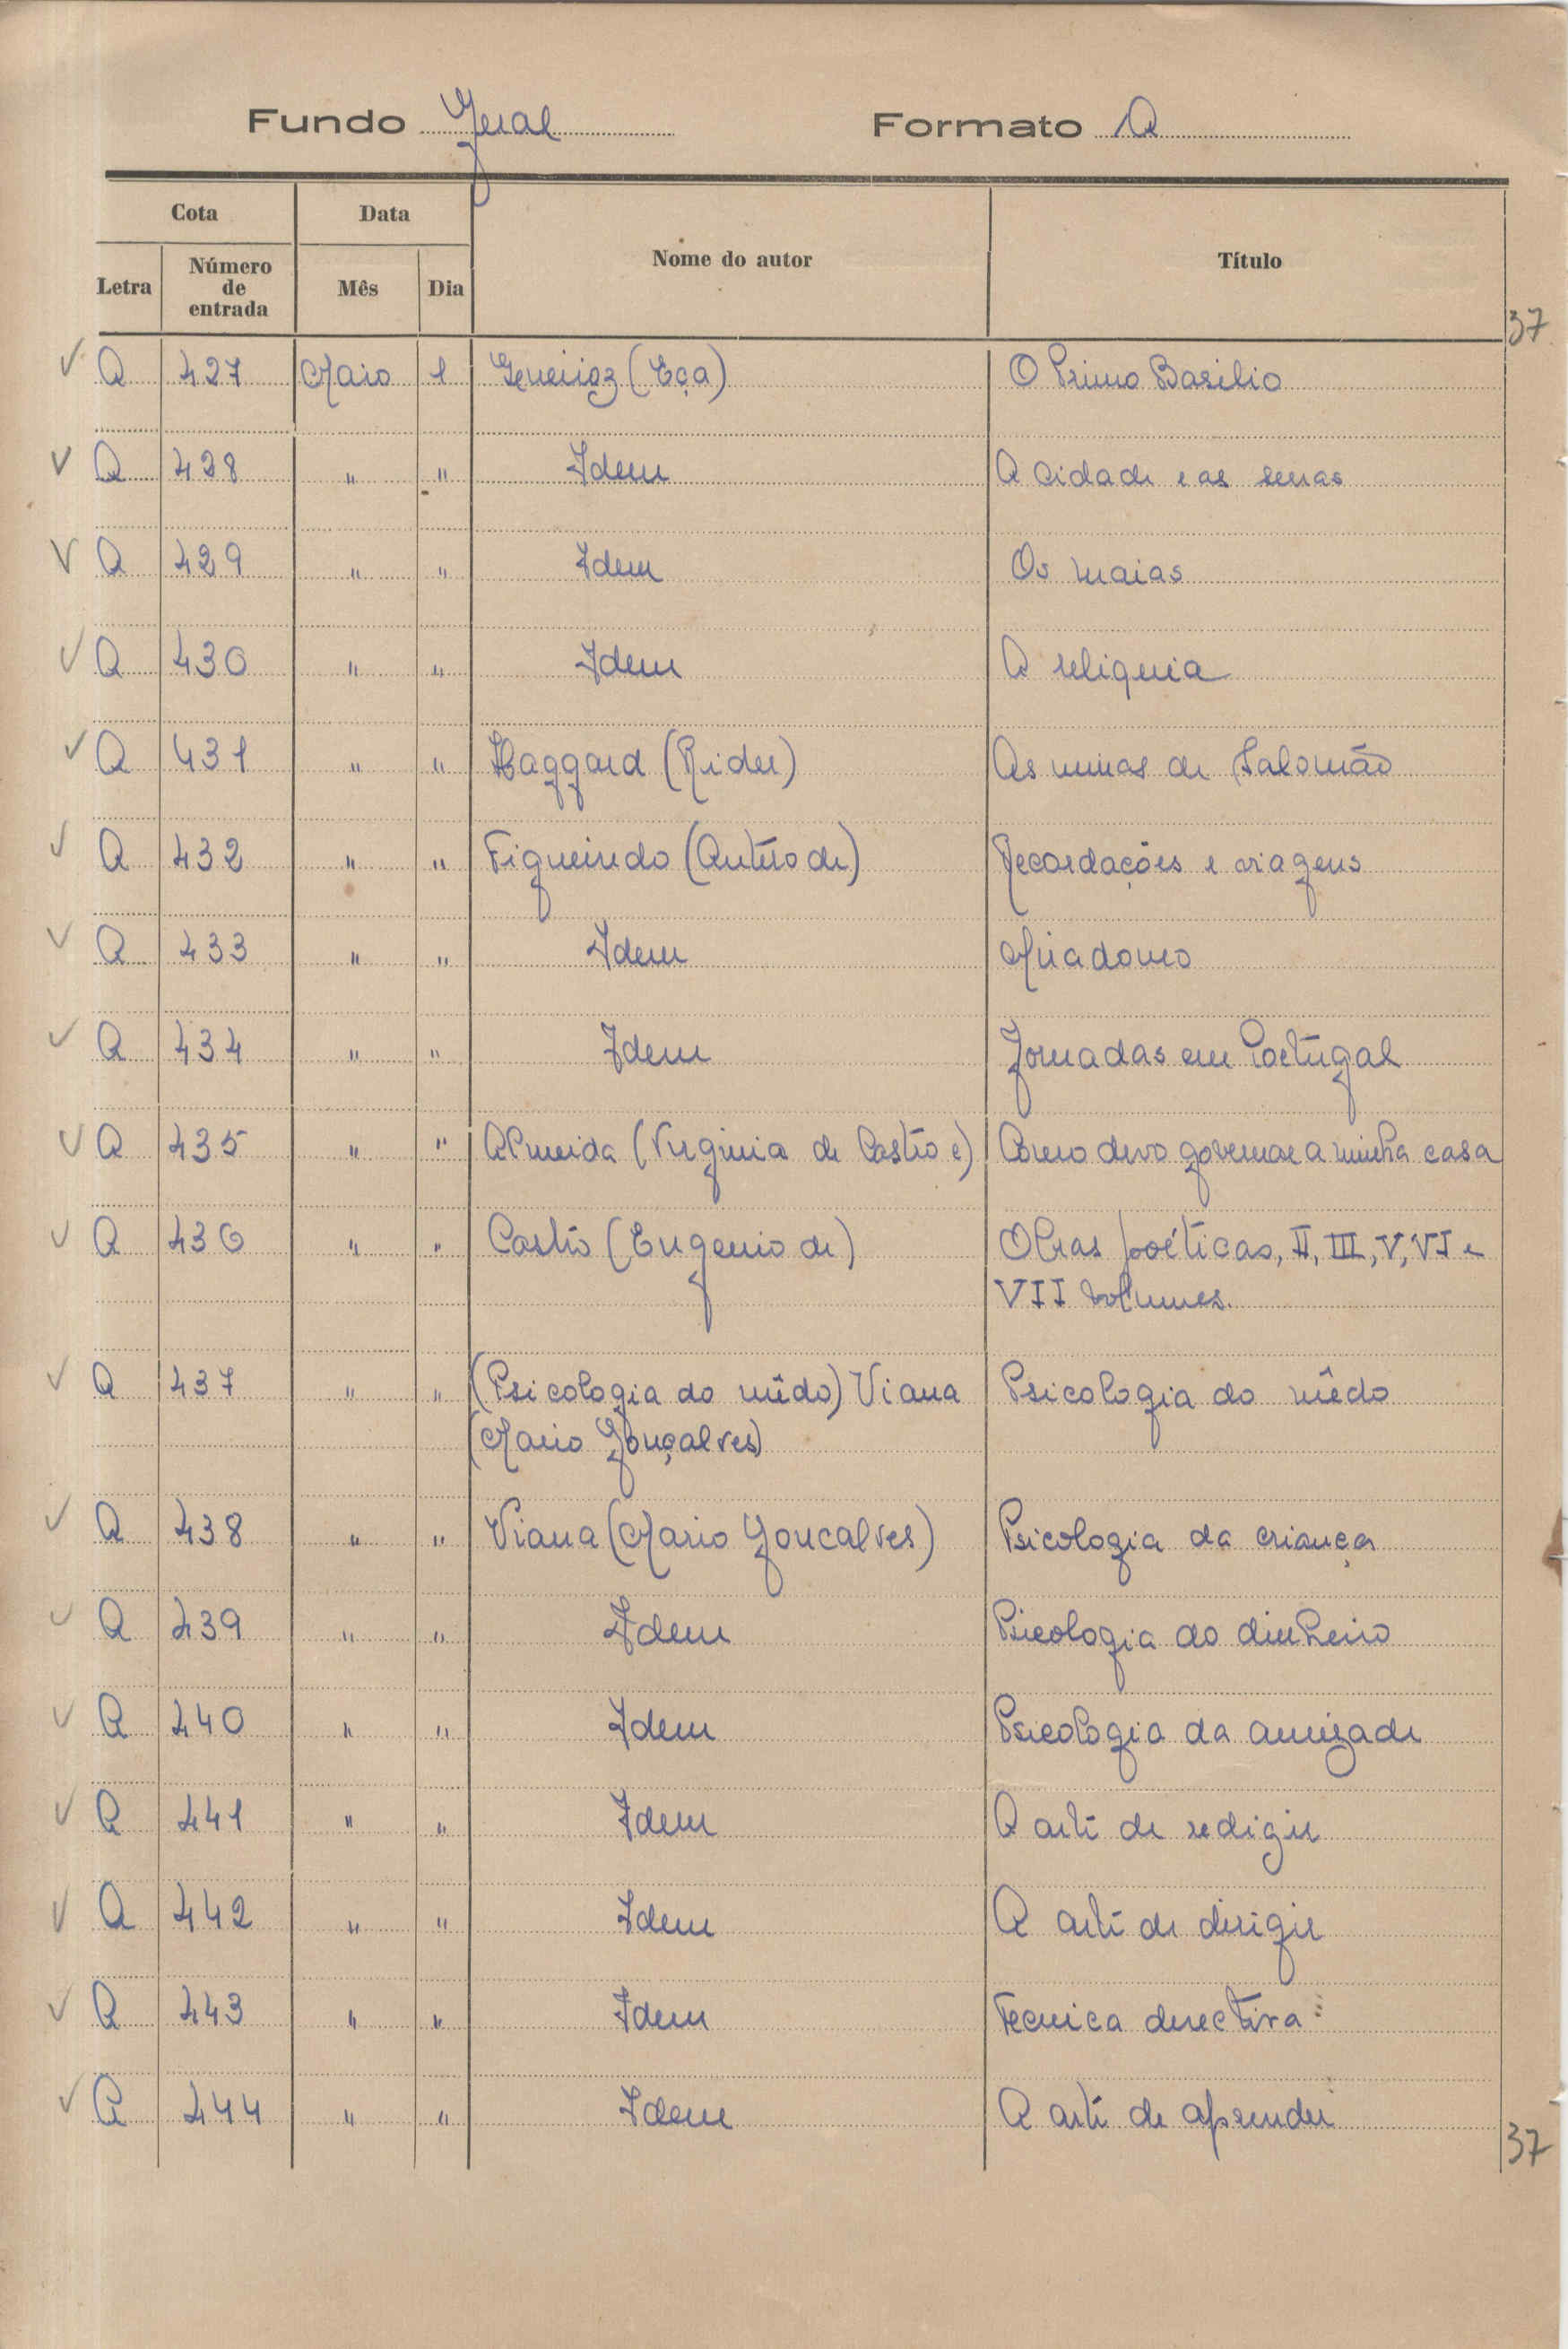 Fundo Geral Formato A
Cota Data Nome do autor Título
Letra Número de entrada Mês Dia
37
✓ A 427 Maio 1 Queiroz (Eça) O Primo Basilio
✓ A 428 " " Idem A cidade e as serras
✓ A 429 " " Idem Os maias
✓ A 430 " " Idem A reliquia
✓ A 431 " " Haggard (Rider) As minas de Salomão
✓ A 432 " " Figueiredo (Antéro de) Recordações e viagens
✓ A 433 " " Idem Miradouro
✓ A 434 " " Idem Jornadas em Portugal
✓ A 435 " " Almeida (Virginia de Castro e) Como devo governar a minha casa
✓ A 436 " " Castro (Eugenio de) Obras poéticas, II, III, V, VI e
VII volumes.
✓ A 437 " " (Psicologia do mêdo) Viana Psicologia do mêdo
(Mario Gonçalves)
✓ A 438 " " Viana (Mario Goncalves) Psicologia da criança
✓ A 439 " " Idem Psicologia do dinheiro
✓ A 440 " " Idem Psicologia da amizade
✓ A 441 " " Idem A arte de redigir
✓ A 442 " " Idem A arte de dirigir
✓ A 443 " " Idem Tecnica directiva
✓ A 444 " " Idem A arte de aprender
37